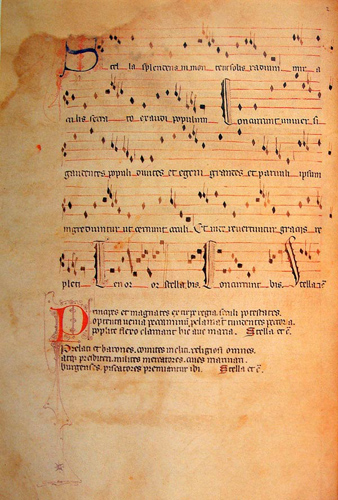 Stel la splendens in mon te ut solis radium mir a
culis serra to exaudi populum Concurrunt univer si
gaudentes populi divites et egeni grandes et parvuli ipsum
ingrediuntur ut cernunt oculi Et inde revertuntur graciis re
pleti Tenor stella bis. Concurrunt bis. Stella
Principes et magnates ex stirpe regia. seculi potestates.
obtenta venia peccaminum tundentes pectora.
poplite flexo clamant hic ave maria. Stella et c.
Prelati et barones. comites incliti. religiosi omnes.
atq presbiteri. milites mercatores. cives marinari.
burgenses. piscatores premiantur ibi. Stella et c.